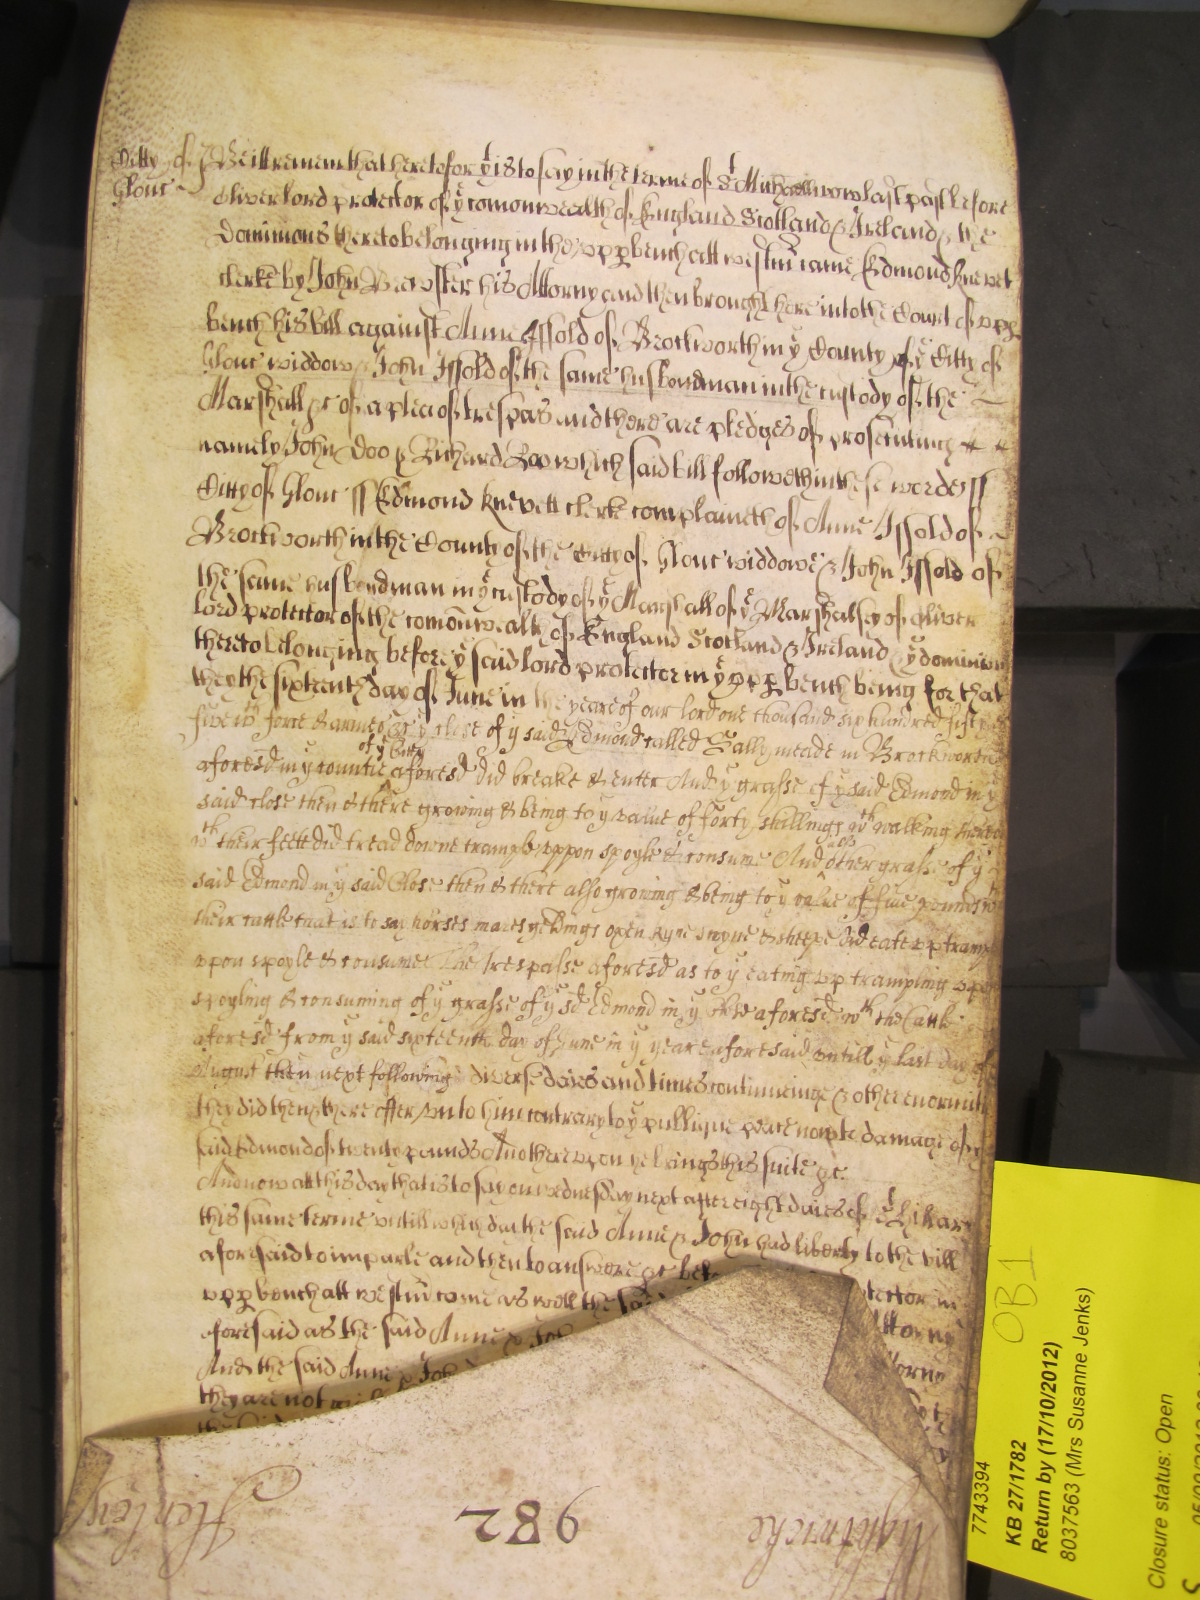 Citty of Glouc
Be itt remem that heretofore yt is to say in the terme of St Michaell now last past before
Oliver lord protector of ye comonwealth of England Scotland & Ireland & the
dominions thereto belonging in the vpper bench att westm came Edmond Knevet
clerke by John Brewster his Attorny and then brought here into the Court of vpper
bench his bill against Anne Issold of Brockworth in ye County of ye Citty of
Glouc widdow & John Issold of the same husbondman in the custody of the
Marshall &c of a plea of trespas and there are pledges of prosecuting
namely John Doo & Richard Roo which said bill followeth in these words ss
Citty of Glouc ss Edmond Knevett clerk complaineth of Anne Issold of
Brockworth in the County of the Citty of Glouc widdowe & John Issold of
the same husbondman in ye custody of ye Marshall of ye Marshalsey of Oliver
lord protector of the comonwealth of England Scotland & Ireland & ye dominions
thereto belonging before ye said lord protector in ye vpper bench being for that
they the sixteenth day of June in the yeare of our lord one thousand six hundred fifty &
five wth force & armes ye close of ye said Edmond called Sallymeade in Brockworth
aforesd in ye countie of ye Citty aforesd did breake & enter And ye grasse of ye said Edmond in ye
said close then & there growing & being to ye value of forty shillings wth walking there
wth their feete did tread downe trample vppon spoyle & consume And allso other grasse of ye
said Edmond in ye said Close then & there also growing & being to ye value of five pounds wth
their cattle that is to say horses mares geldings oxen kyne swyne & sheepe did eate vp trample
vpon spoyle & consume The trespasse aforesd as to ye eating vp trampling vpon
spoyling & consuming of ye grasse of ye sd Edmond in ye close aforesd wth the Cattle
aforesd from ye said sixteenth day of June in ye yeare aforesaid vntill ye last day of
August then next following diverse daies and times continueinge & other enormities
they did then & there offer vnto him contrary to ye publique peace now to damage of ye
said Edmond of twenty pounds And therevpon he brings his suite &c
And now att this day that is to say on wednesday next after eight daies of St Hilary
this same terme vntill which day the said Anne & John had liberty to the bill
aforesaid to imparle and then to answere &c before protector in
vpper bench att westm come as well the said Attorny
aforesaid as the said Anne & John Attorny
And the said Anne & John
they are not
the said
Henley
982
Lightwiche
OB1
7743394
KB 27/1782
Return by (17/10/2012)
8037563 (Mrs Susanne Jenks)
Closure status: Open